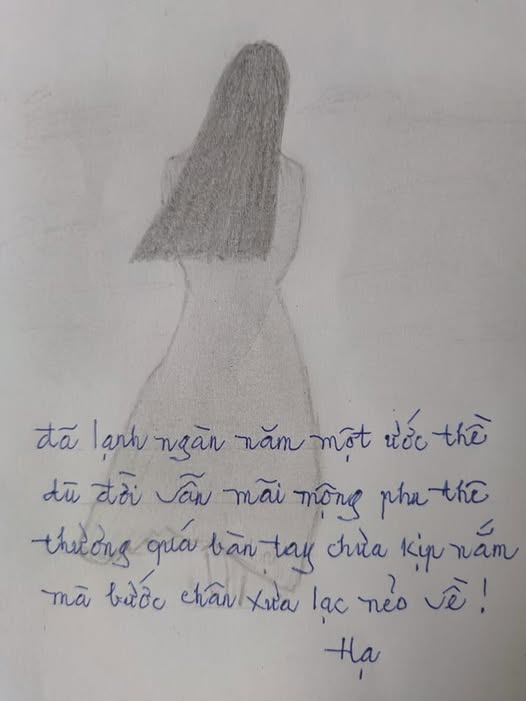 đã lạnh ngàn năm một ước thề
dù đời vẫn mãi mộng phu thê
thương quá bàn tay chưa kịp nắm
mà bước chân xưa lạc nẻo về !
Hạ